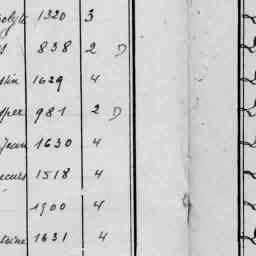 olyte 1320 3
s 838 2 D
stin 1629 4
sper 981 2 D
jean 1630 4
ecurs 1518 4
1900 4
toine 1631 4